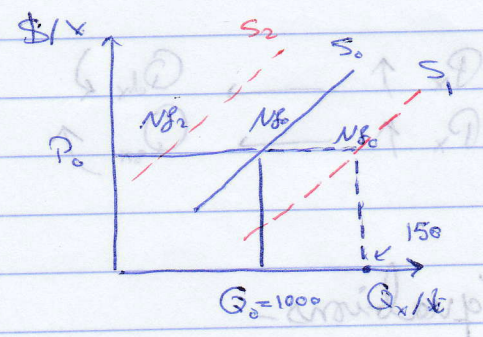 $/x
S₂
S₀
S₁
N f₂
N f₀
N f₀
P₀
150
Q₀=1000
Qₓ/t